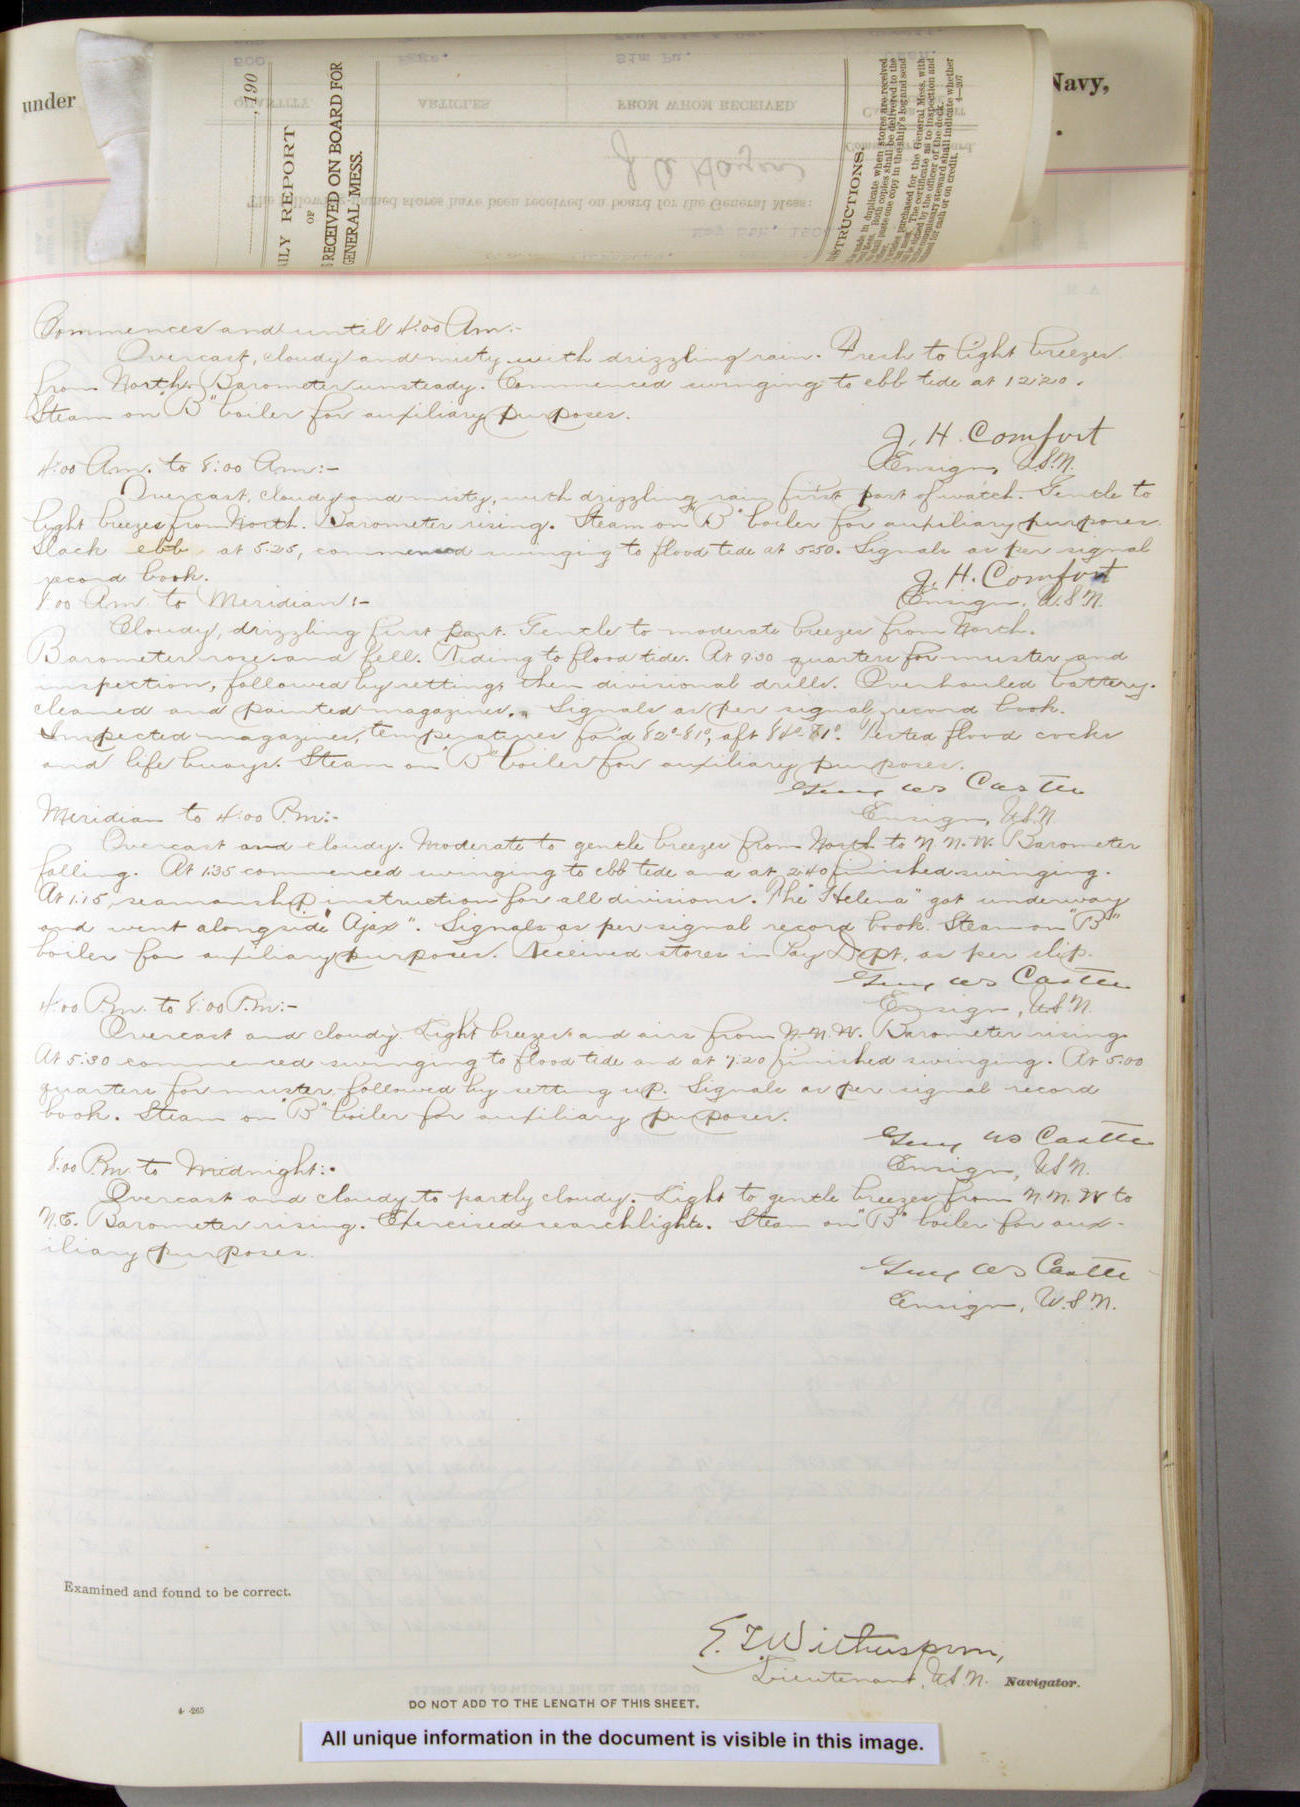 under
Navy,
, 190
ILY REPORT
OF
RECEIVED ON BOARD FOR
GENERAL MESS.
QUANTITY.
ARTICLES
FROM WHOM RECEIVED.
The following-named stores have been received on board for the General Mess:
STRUCTIONS.
made in duplicate when stores are received
Both copies shall be delivered to the
shall paste one copy in the ship's log and send
purchased for the General Mess, with
The certificate as to inspection and
signed by the officer of the deck.
commissary steward shall indicate whether
for cash or on credit.
4—207
Commences and until 4:00 Am:-
Overcast, cloudy and misty with drizzling rain. Fresh to light breezes
from North. Barometer unsteady. Commenced swinging to ebb tide at 12:20.
Steam on "B" boiler for auxiliary purposes.
J. H. Comfort
Ensign, U.S.N.
4:00 Am. to 8:00 Am:-
Overcast, cloudy and misty, with drizzling rain first part of watch. Gentle to
light breezes from North. Barometer rising. Steam on "B" boiler for auxiliary purposes.
Slack ebb at 5:25, commenced swinging to flood tide at 5:50. Signals as per signal
record book.
J. H. Comfort
Ensign, U.S.N.
8:00 Am to Meridian:-
Cloudy, drizzling first part. Gentle to moderate breezes from North.
Barometer rose and fell. Riding to flood tide. At 9:30 quarters for muster and
inspection, followed by setting, then divisional drills. Overhauled battery,
cleaned and painted magazines. Signals as per signal record book.
Inspected magazines, temperatures fo'd 82°-81°, aft 84°-81°. Tested flood cocks
and life buoys. Steam on "B" boiler for auxiliary purposes.
Guy WS Castle
Ensign, U.S.N.
Meridian to 4:00 P.m:-
Overcast and cloudy. Moderate to gentle breezes from North to N.N.W. Barometer
falling. At 1:35 commenced swinging to ebb tide and at 2:40 finished swinging.
At 1:15, seamanship instruction for all divisions. The "Helena" got underway
and went alongside "Ajax". Signals as per signal record book. Steam on "B"
boiler for auxiliary purposes. Received stores in Pay Dept. as per slip.
Guy WS Castle
Ensign, U.S.N.
4:00 P.m. to 8:00 P.m:-
Overcast and cloudy. Light breezes and airs from N.N.W. Barometer rising.
At 5:30 commenced swinging to flood tide and at 7:20 finished swinging. At 5:00
quarters for muster followed by setting up. Signals as per signal record
book. Steam on "B" boiler for auxiliary purposes.
Guy WS Castle
Ensign, U.S.N.
8:00 P.m. to Midnight:-
Overcast and cloudy to partly cloudy. Light to gentle breezes from N.N.W to
N.E. Barometer rising. Exercised searchlights. Steam on "B" boiler for aux-
iliary purposes.
Guy WS Castle
Ensign, U.S.N.
Examined and found to be correct.
E. T. Witherspoon,
Lieutenant, U.S.N. Navigator.
DO NOT ADD TO THE LENGTH OF THIS SHEET.
4-265
All unique information in the document is visible in this image.